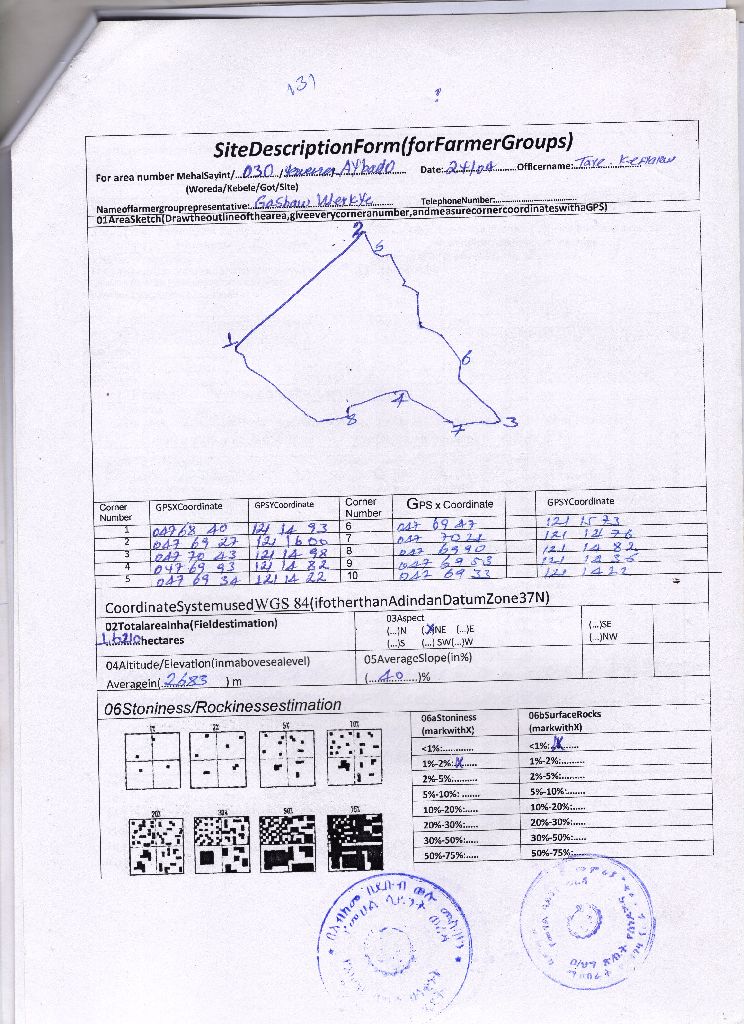 131
SiteDescriptionForm(forFarmerGroups)
For area number MehalSayint/...030./ Aybado Date:.24/04 Officername:
(Woreda/Kebele/Got/Site)
Nameoffarmergrouprepresentative:.Gashaw Werkye TelephoneNumber:
01AreaSketch(Drawtheoutlineofthearea,giveeverycorneranumber,andmeasurecornercoordinateswithaGPS)
2
5
1
6
4
8
7
3
Corner Number GPSXCoordinate GPSYCoordinate Corner Number GPS x Coordinate GPSYCoordinate
1 0476840 1211493 6 0476947 1211573
2 0476927 1211600 7 0477021 1211476
3 0477043 1211498 8 0476990 121148
4 0476993 1211482 9 0476953
5 0476934 1211422 10 0476933 1211422
CoordinateSystemusedWGS 84(ifotherthanAdindanDatumZone37N)
02Totalareainha(Fieldestimation)
hectares
03Aspect
(...)N (.X)NE (...)E (...)SE
(...)S (...) SW(...)W (...)NW
04Altitude/Elevation(inmabovesealevel)
Averagein(.2683) m
05AverageSlope(in%)
(....40......)%
06Stoniness/Rockinessestimation
1% 2% 5% 10%
20% 30% 50% 75%
06aStoniness (markwithX) 06bSurfaceRocks (markwithX)
<1%:........... <1%:.X.....
1%-2%:X..... 1%-2%:.........
2%-5%:........ 2%-5%:.........
5%-10%: ....... 5%-10%:.......
10%-20%:..... 10%-20%:.....
20%-30%:..... 20%-30%:.....
30%-50%:..... 30%-50%:.....
50%-75%:..... 50%-75%: